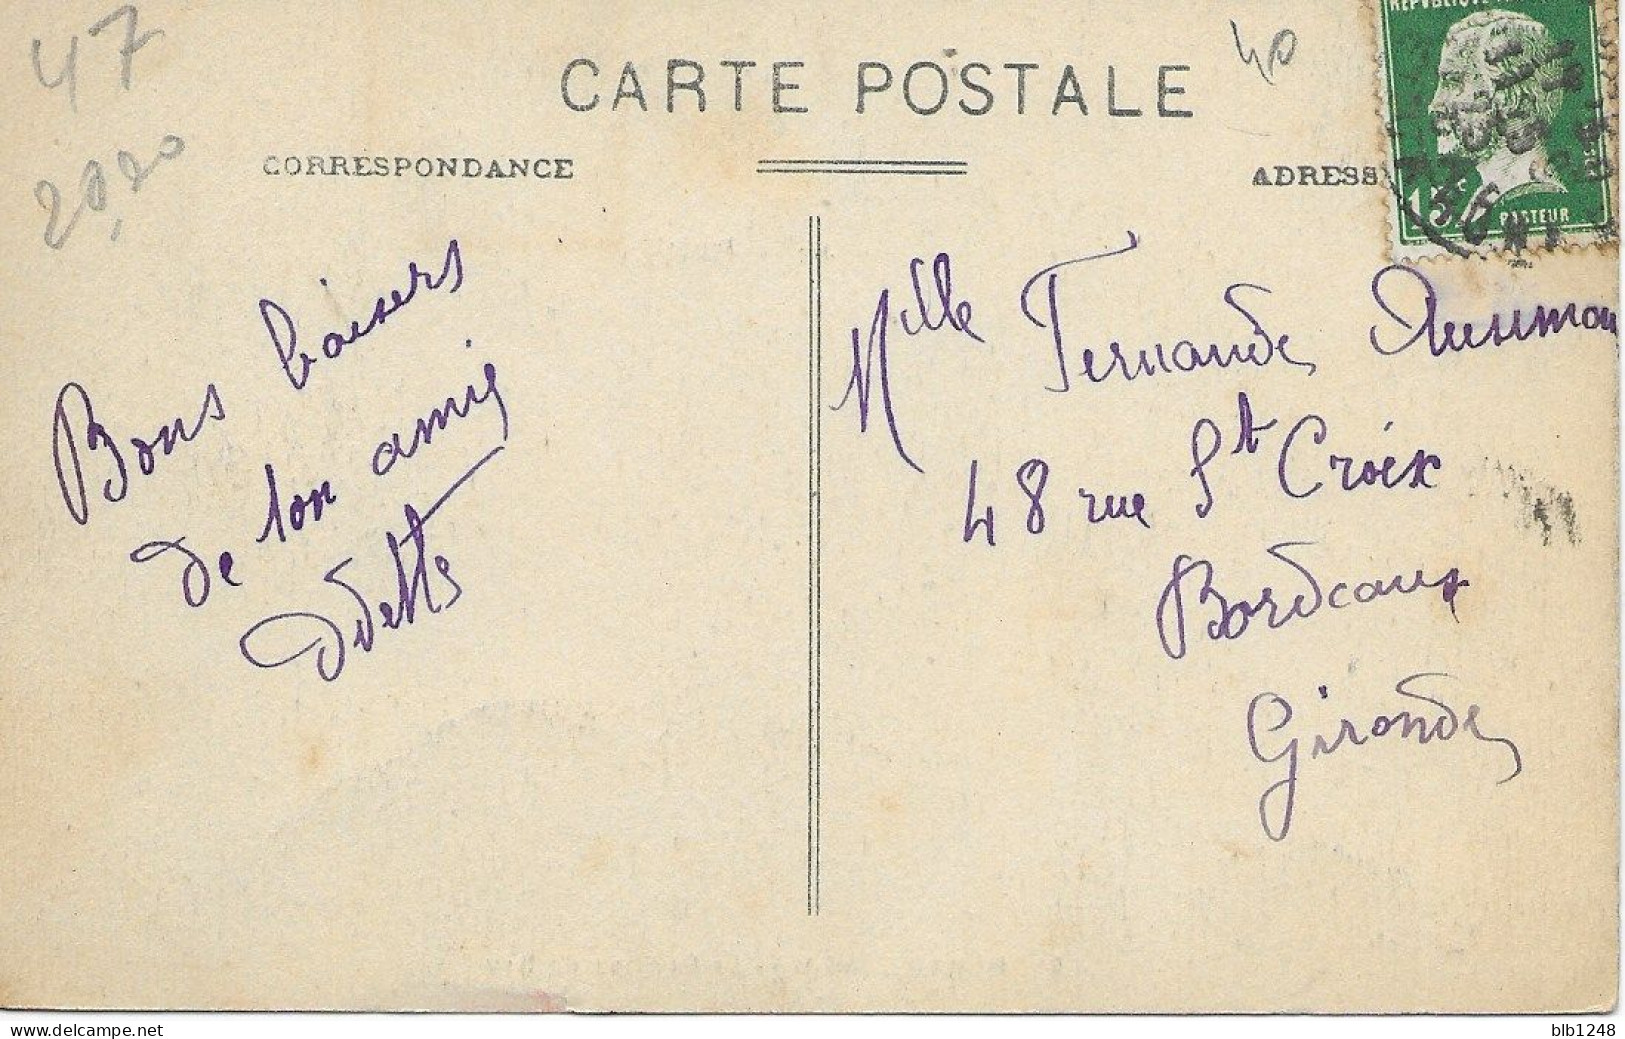 47
20,20
CARTE POSTALE
40
RÉPUBLIQUE
15c
PASTEUR
CORRESPONDANCE
ADRESS
Bons baisers
de ton amie
Odette
Mlle Fernande
48 rue St Croix
Bordeaux
Gironde
www.delcampe.net
blb1248